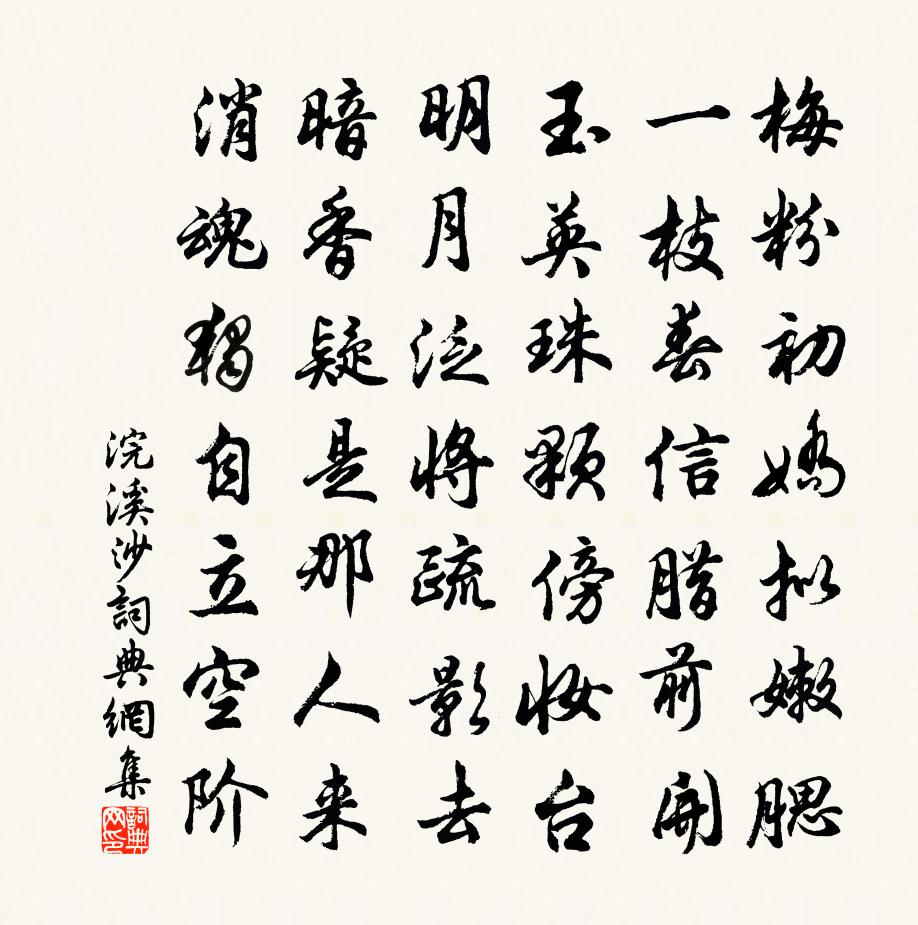 梅粉初嬌拟嫩腮
一枝春信腊前開
玉英珠顆傍妝台
明月泛將疏影去
暗香疑是那人来
消魂獨自立空阶
浣溪沙詞典網集
詞典网印